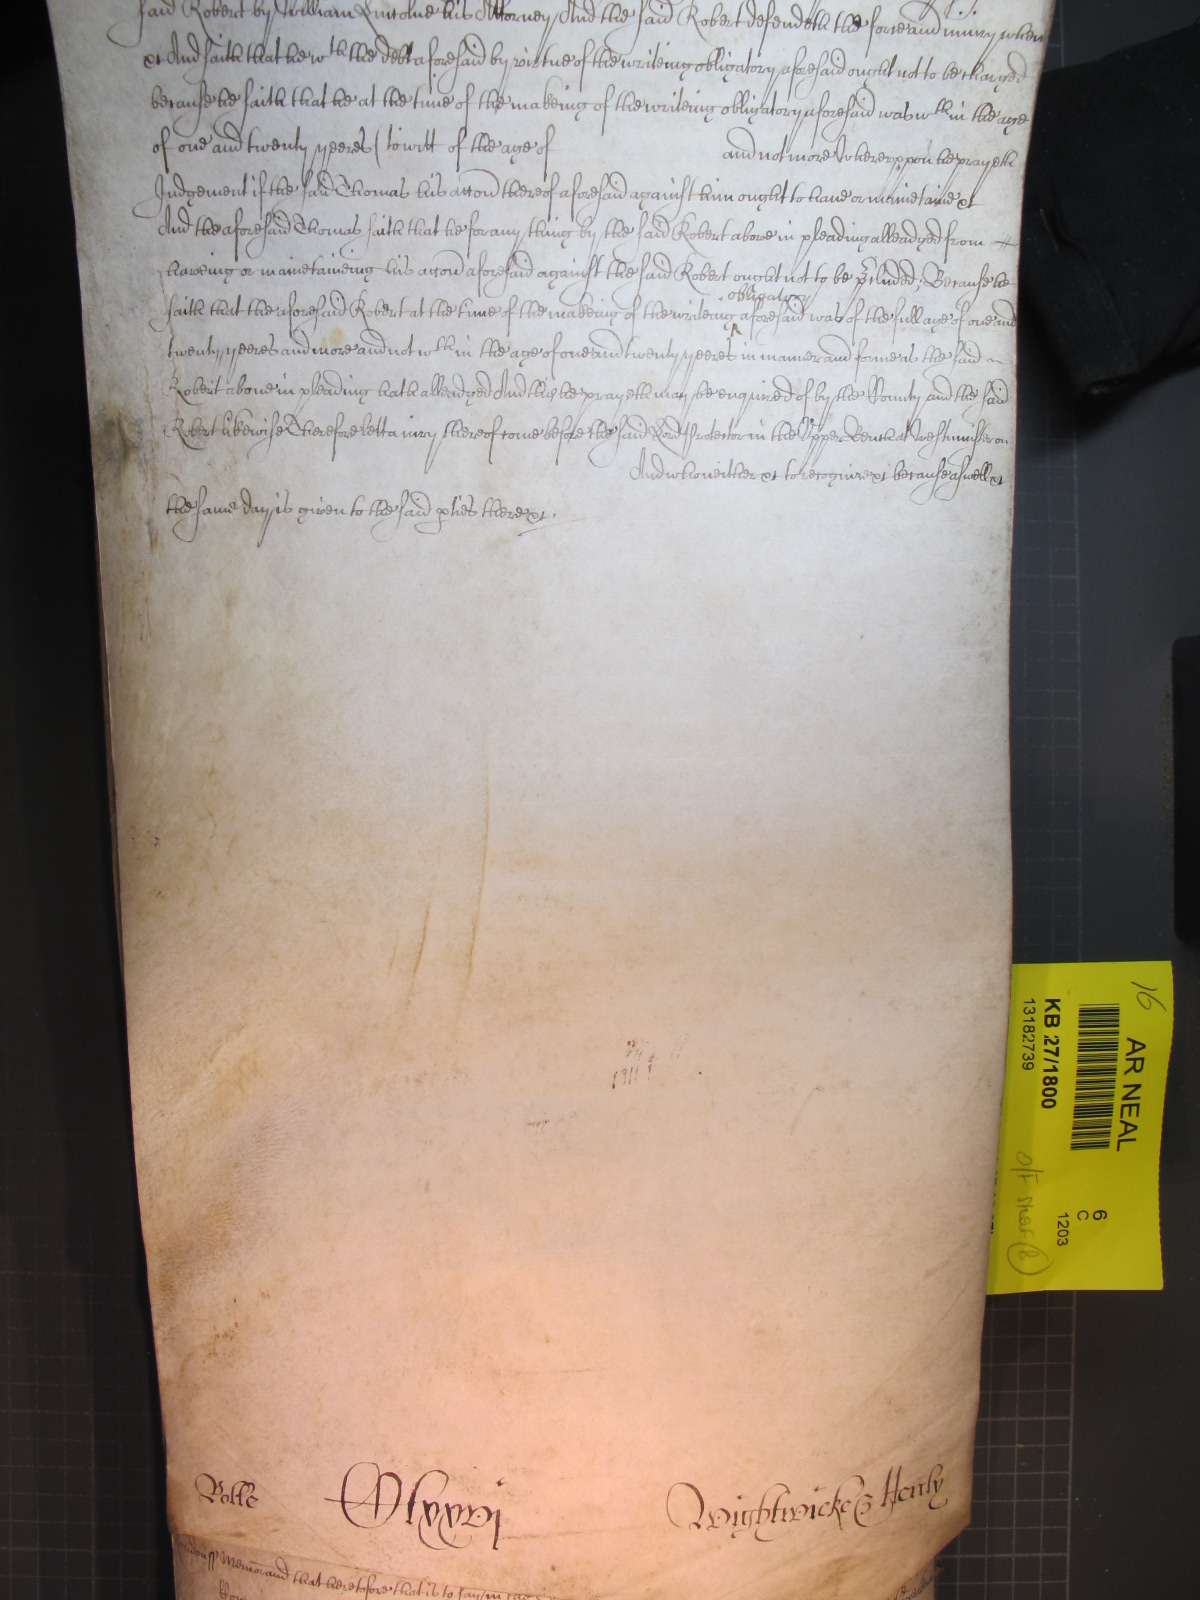 said Robert by William Antolne his Attorney And the said Robert defendeth the force and iniury when
&c And saith that he wth the debt aforesaid by virtue of the writeing obligatory aforesaid ought not to be charged
because he saith that he at the time of the makeing of the writeing obligatory aforesaid was wthin the age
of one and twenty yeeres (to witt of the age of and not more Whereuppon he prayeth
Judgement if the said Thomas his accon thereof aforesaid against him ought to have or mainetaine &c
And the aforesaid Thomas saith that he for any thing by the said Robert above in pleading alleadged from
haveing or mainetaineing his accon aforesaid against the said Robert ought not to be pcluded; Because he
saith that the aforesaid Robert at the time of the makeing of the writeing obligatory aforesaid was of the full age of one and
twenty yeeres and more and not wthin the age of one and twenty yeeres in manner and forme as the said
Robert above in pleading hath alleadged And this he prayeth may be enquired of by the Country and the said
Robert likewise Therefore lett a iury thereof come before the said Lord Protector in the Upper Bench at Westminster on
And who neither &c to recognize &c because aswell &c
the same day is given to the said pties there &c.
Rolle
Clxxvj
Wightwicke & Henly
Memorand that heretofore that is to say in the
16
AR NEAL
KB 27/1800
13182739
6
C
1203